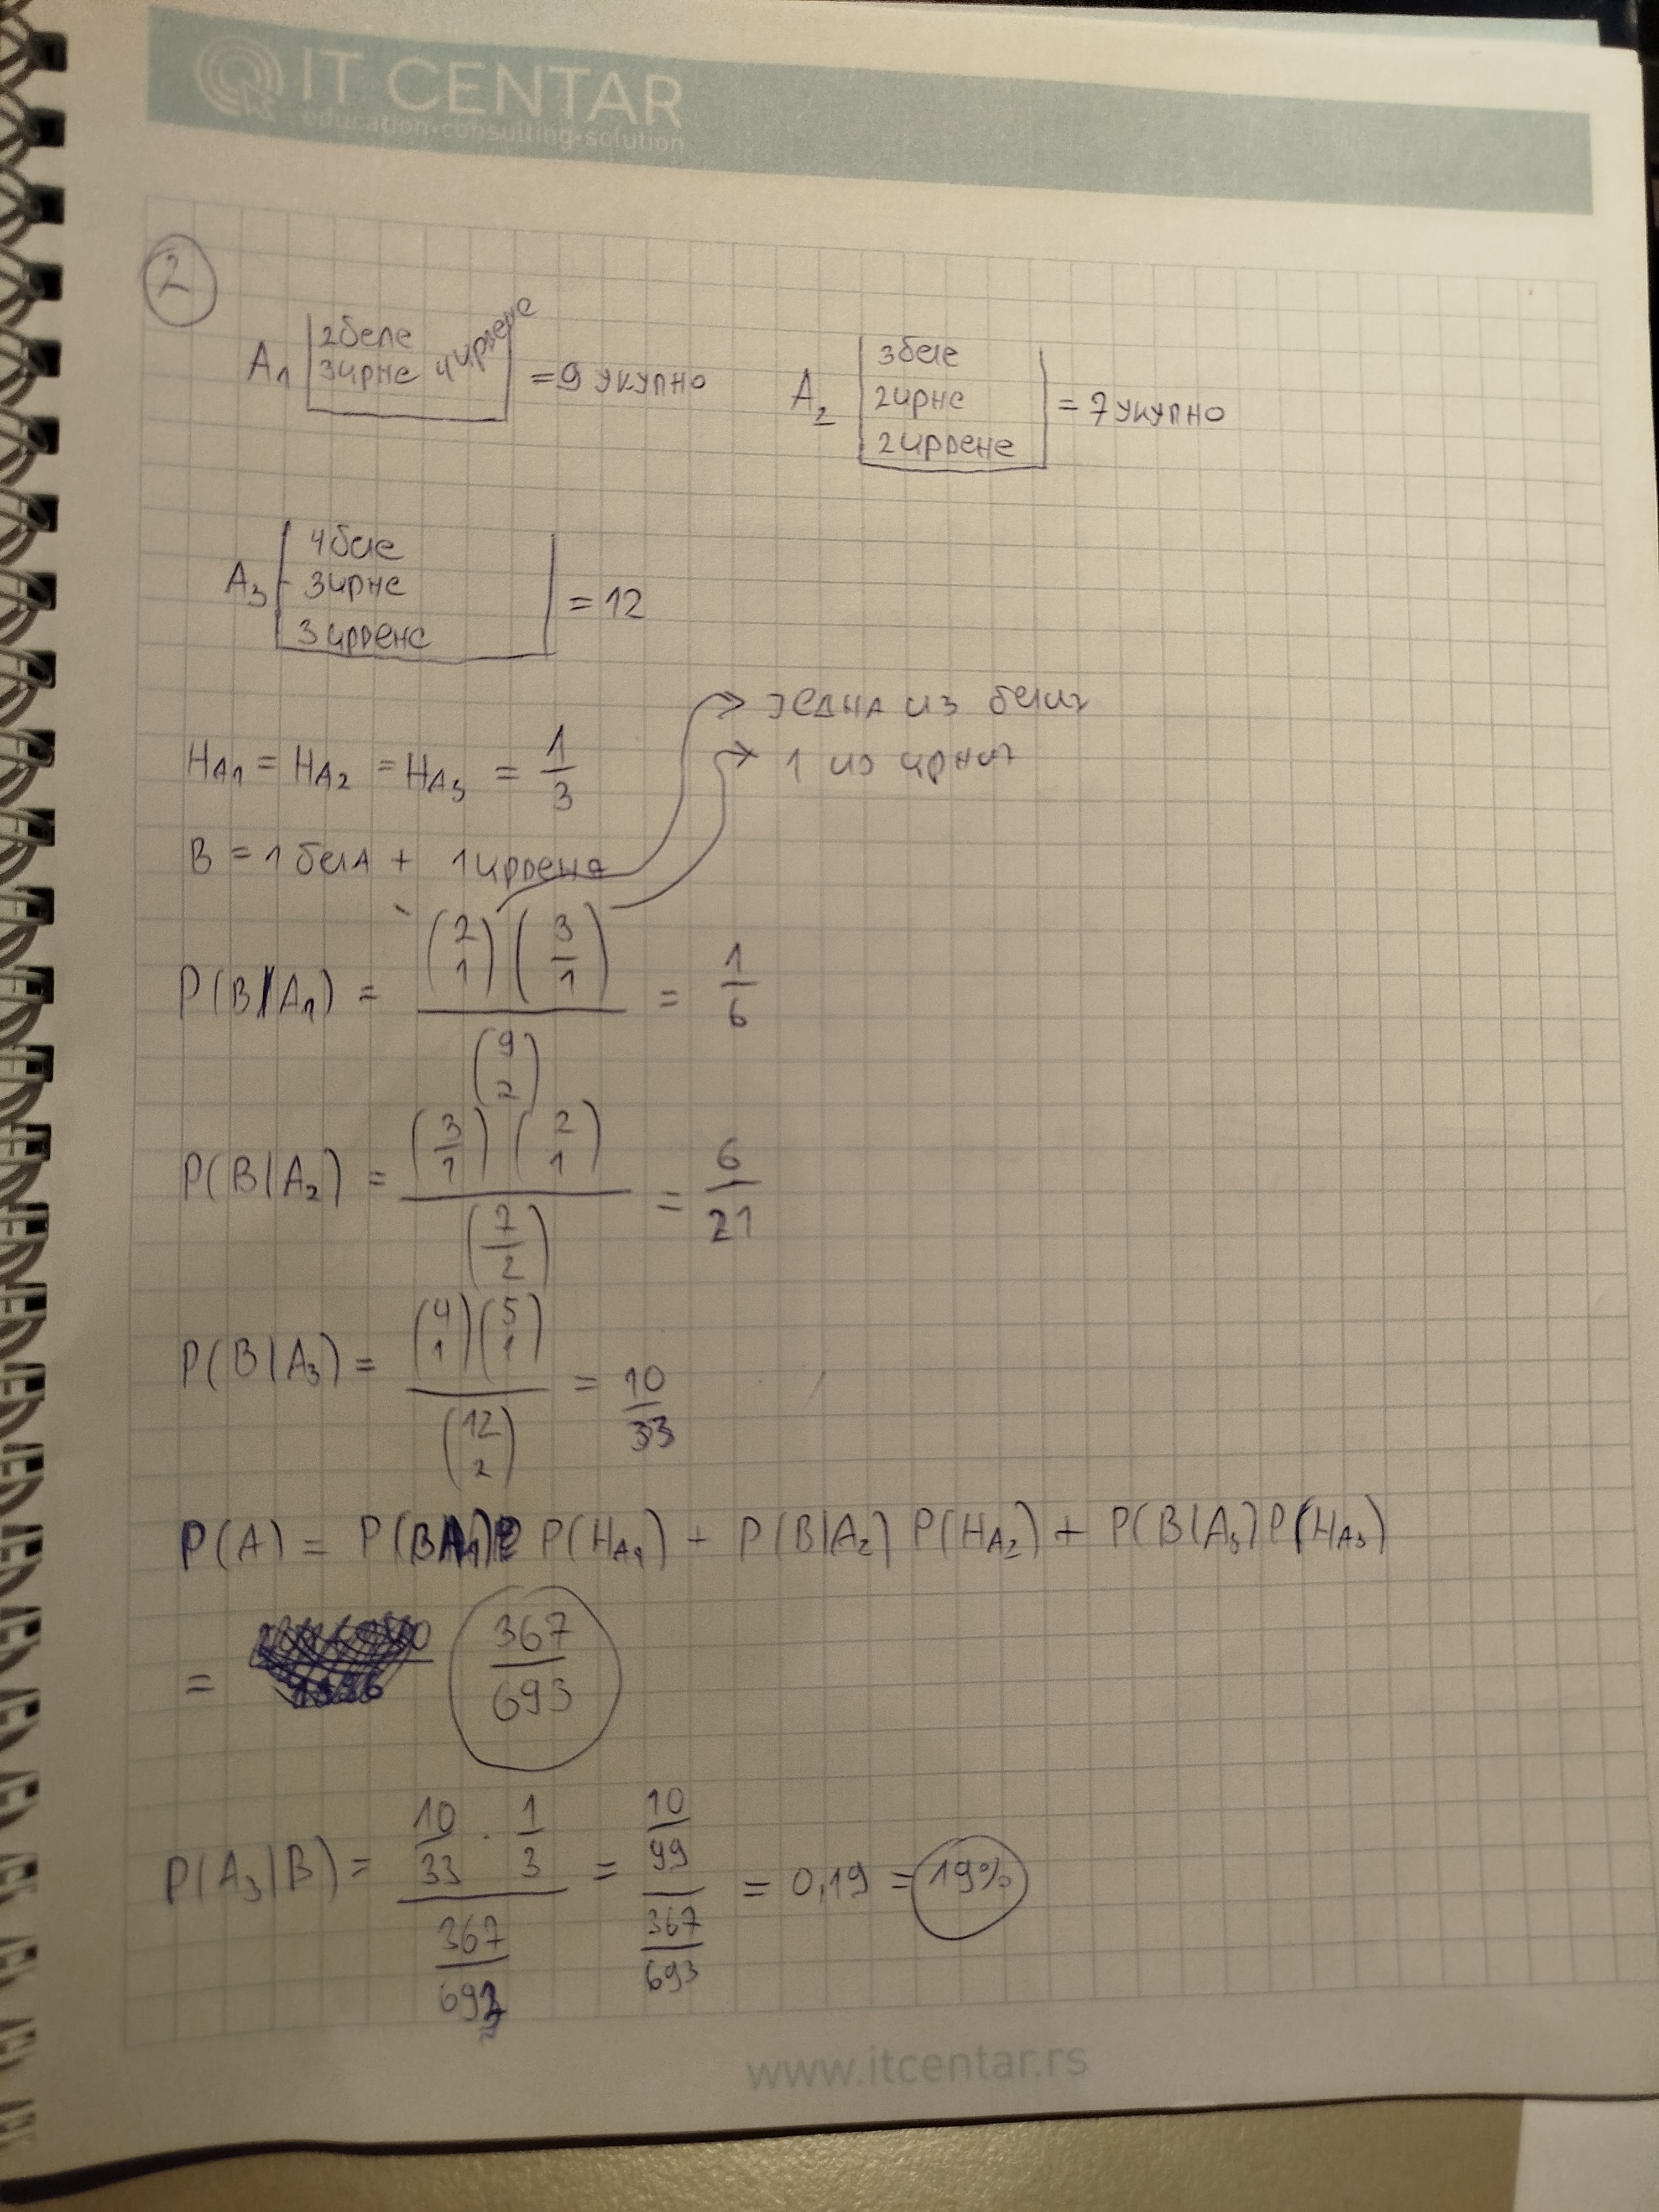 IT CENTAR
education·consulting·solution
2
A₁ 2беле 3црне 4црвене = 9 укупно
A₂ 3беле 2црне 2црвене = 7 укупно
A₃ 4беле 3црне 3црвене = 12
→ једна из белих
H_A₁ = H_A₂ = H_A₃ = 1/3
→ 1 из црних
B = 1 бела + 1 црвена
P(B|A₁) = (2 1)(3/1) / (9 2) = 1/6
P(B|A₂) = (3/1)(2 1) / (7/2) = 6/21
P(B|A₃) = (4 1)(5 1) / (12 2) = 10/33
P(A) = P(B|A₁) P(H_A₁) + P(B|A₂) P(H_A₂) + P(B|A₃) P(H_A₃)
= 367/693
P(A₃|B) = (10/33 · 1/3) / (367/693) = (10/99) / (367/693) = 0,19 = 19%
www.itcentar.rs